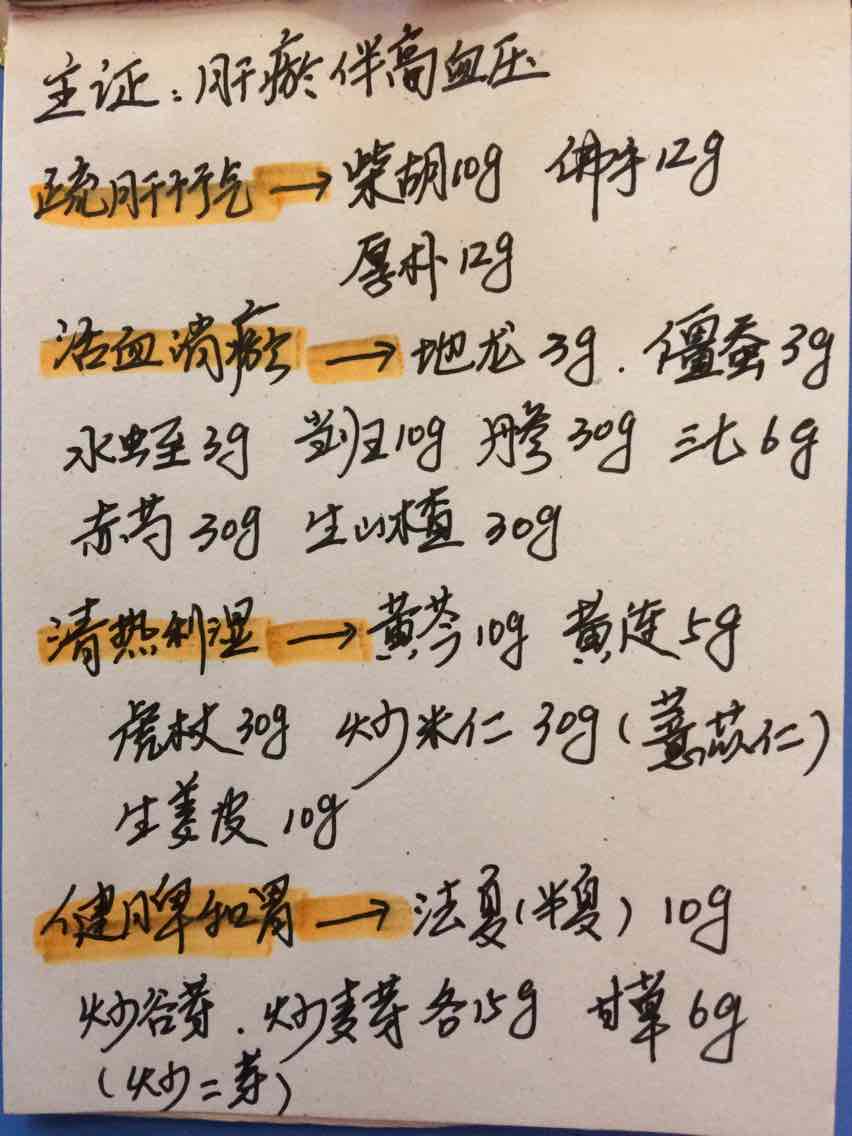 主证：肝瘀伴高血压
疏肝行气 → 柴胡10g 佛手12g
厚朴12g
活血消瘀 → 地龙 3g . 僵蚕 3g
水蛭 3g 当归10g 丹参 30g 三七 6g
赤芍 30g 生山楂 30g
清热利湿 → 黄芩10g 黄连 5g
虎杖30g 炒米仁 30g (薏苡仁)
生姜皮 10g
健脾和胃 → 法夏(半夏) 10g
炒谷芽 . 炒麦芽各15g 甘草 6g
(炒二芽)